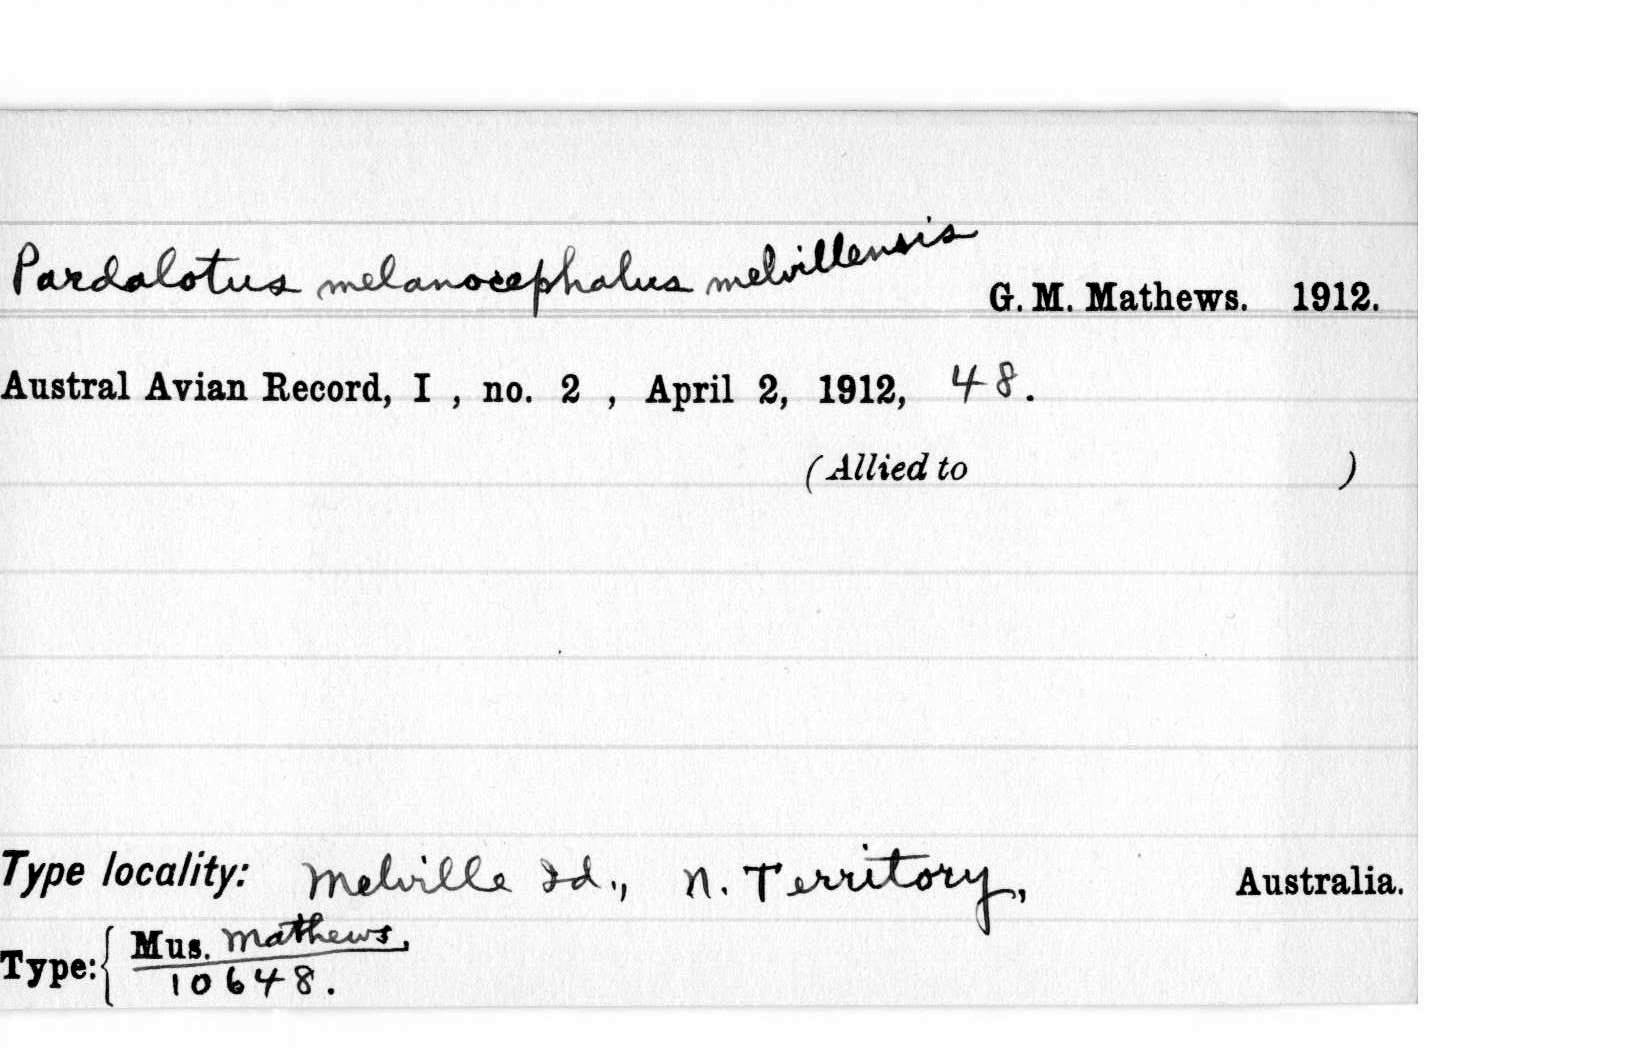 Pardalotus melanocephalus melvillensis
G. M. Mathews. 1912.
Austral Avian Record, I , no. 2 , April 2, 1912, 48.
(Allied to )
Type locality: Melville Id., N. Territory, Australia.
Type: { Mus. Mathews.
10648.